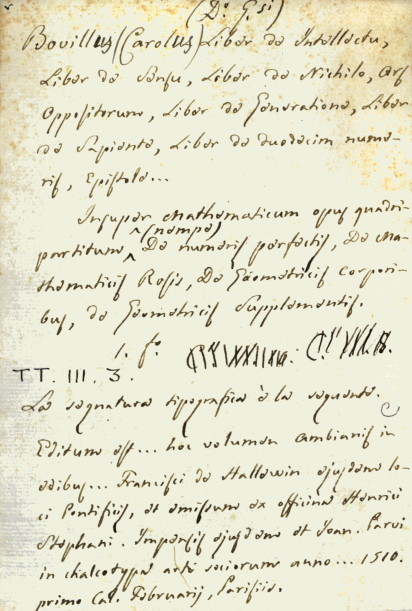 (D. G. si)
Bovillus (Carolus) Liber de Intellectu,
Liber de Sensu, Liber de Nichilo, Ars
Oppositorum, Liber de Generatione, Liber
de Sapiente, Liber de duodecim nume-
ris, Epistole...
Insuper Mathematicum opus quadri-
partitum (nempe) De numeris perfectis, De Ma-
thematicis Rosis, De Geometricis Corpori-
bus, de Geometricis Supplementis.
1. fo.
TT. III. 3.
La segnatura tipografica è la seguente.
Editum est... hoc volumen Ambianis in
edibus... Francisci de Hallewin ejusdem lo-
ci Pontificis, et emissum ex officina Henrici
Stephani. Impensis ejusdem et Joan. Parvi
in chalcotypa arte sociorum anno... 1510.
primo Cal. Februarij, Parisiis.